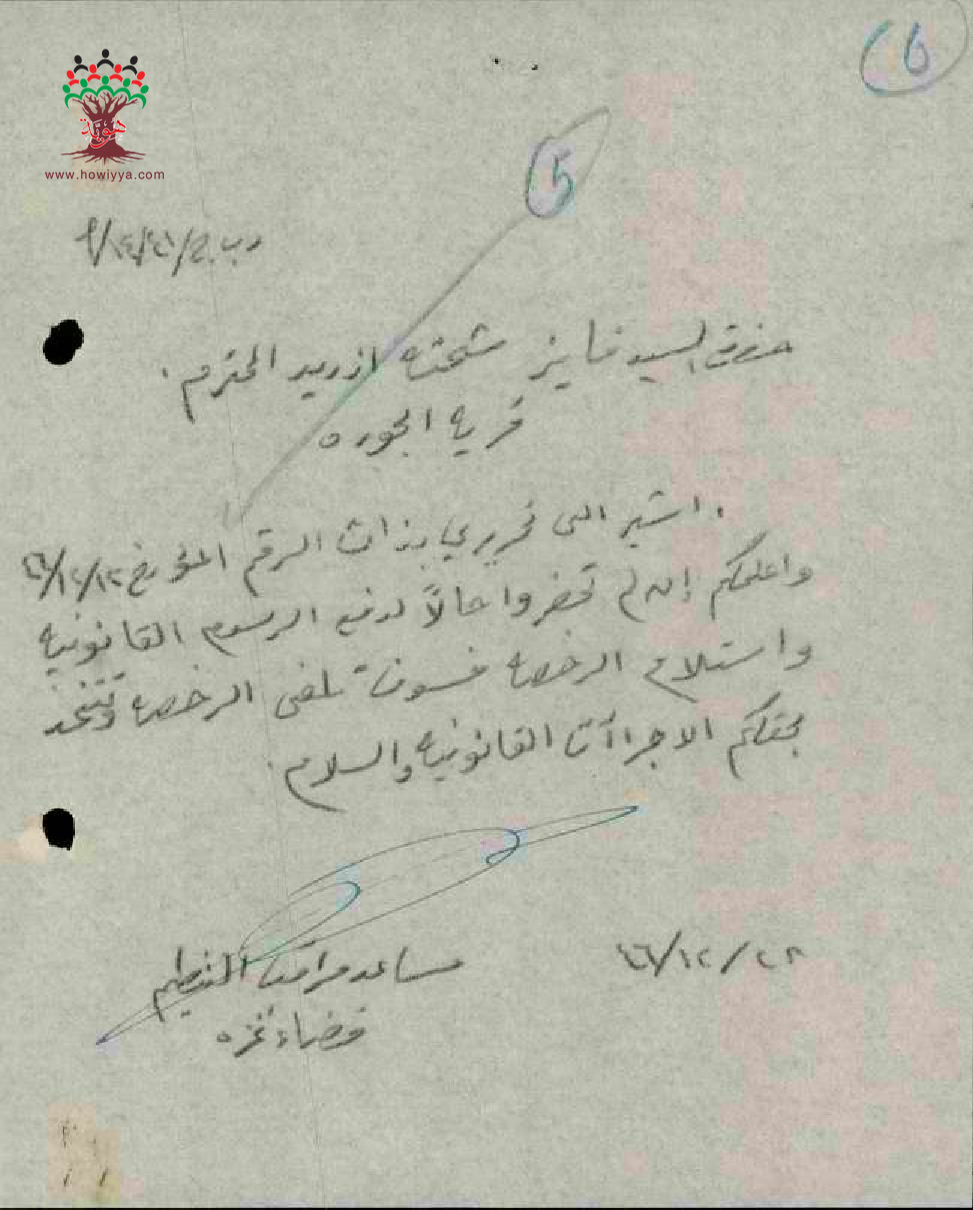 6
5
هوية
www.howiyya.com
حضرة السيد فايز شحته ازريد المحترم .
قرية الجوره
. اشير الى تحريري بذات الرقم المؤرخ
واعلمكم إن لم تحضروا حالاً لدفع الرسوم القانونيه
واستلام الرخصه فسوف تلغى الرخصه وتتخذ
بحقكم الاجراآت القانونيه والسلام .
مساعد مراقب التنظيم
قضاء غزه